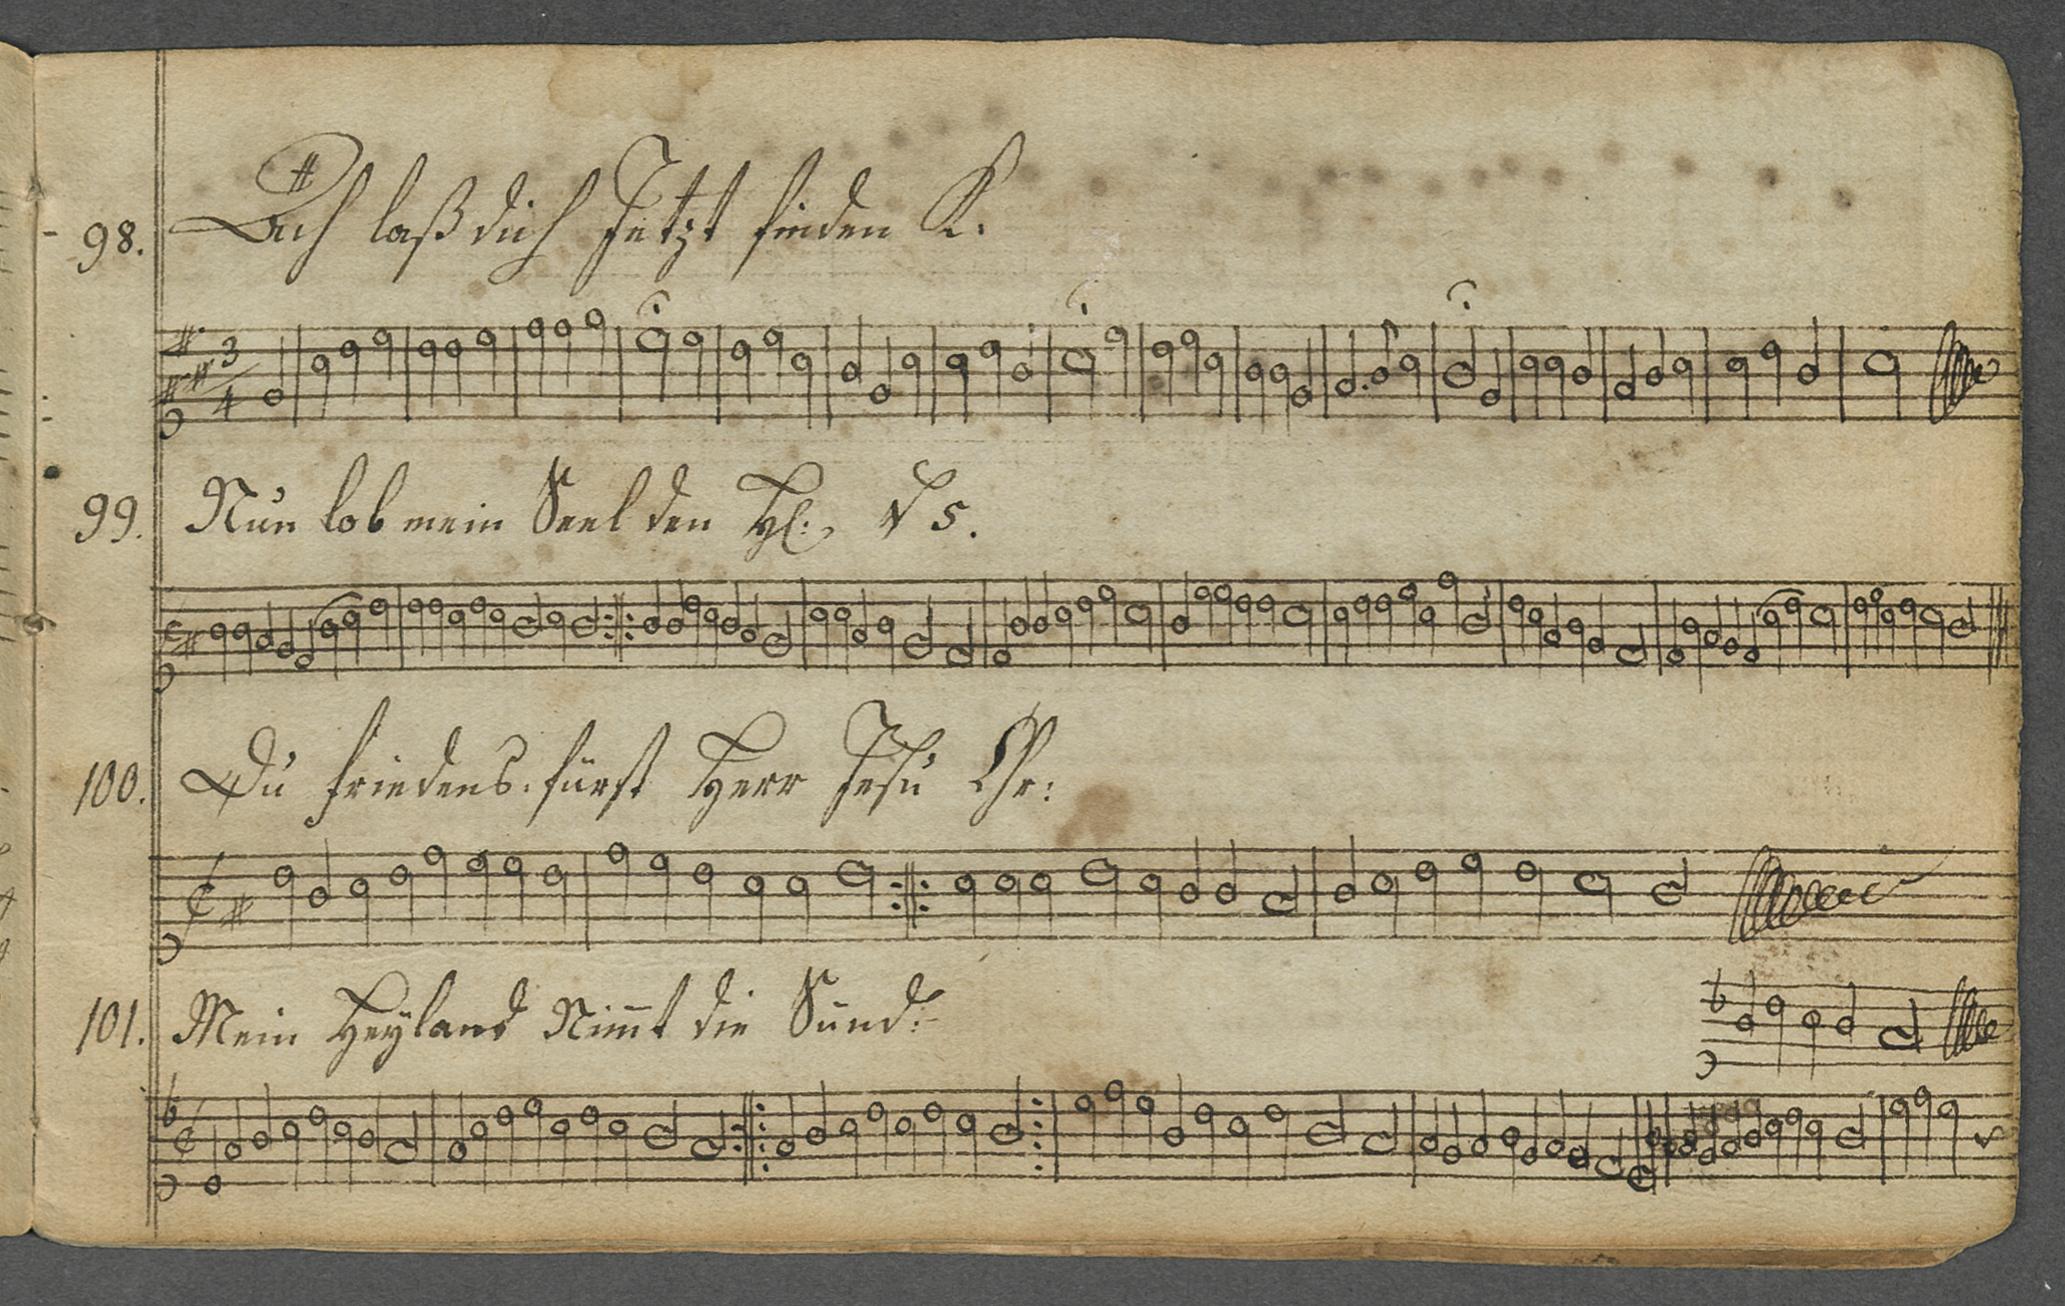 98. Ach laß dich Jetzt finden K.
3
4
99. Nun lob mein Seel den
5.
100. Du friedens-fürst Herr Jesu Chr:
101. Mein Heyland Nim̅t die Sünd: